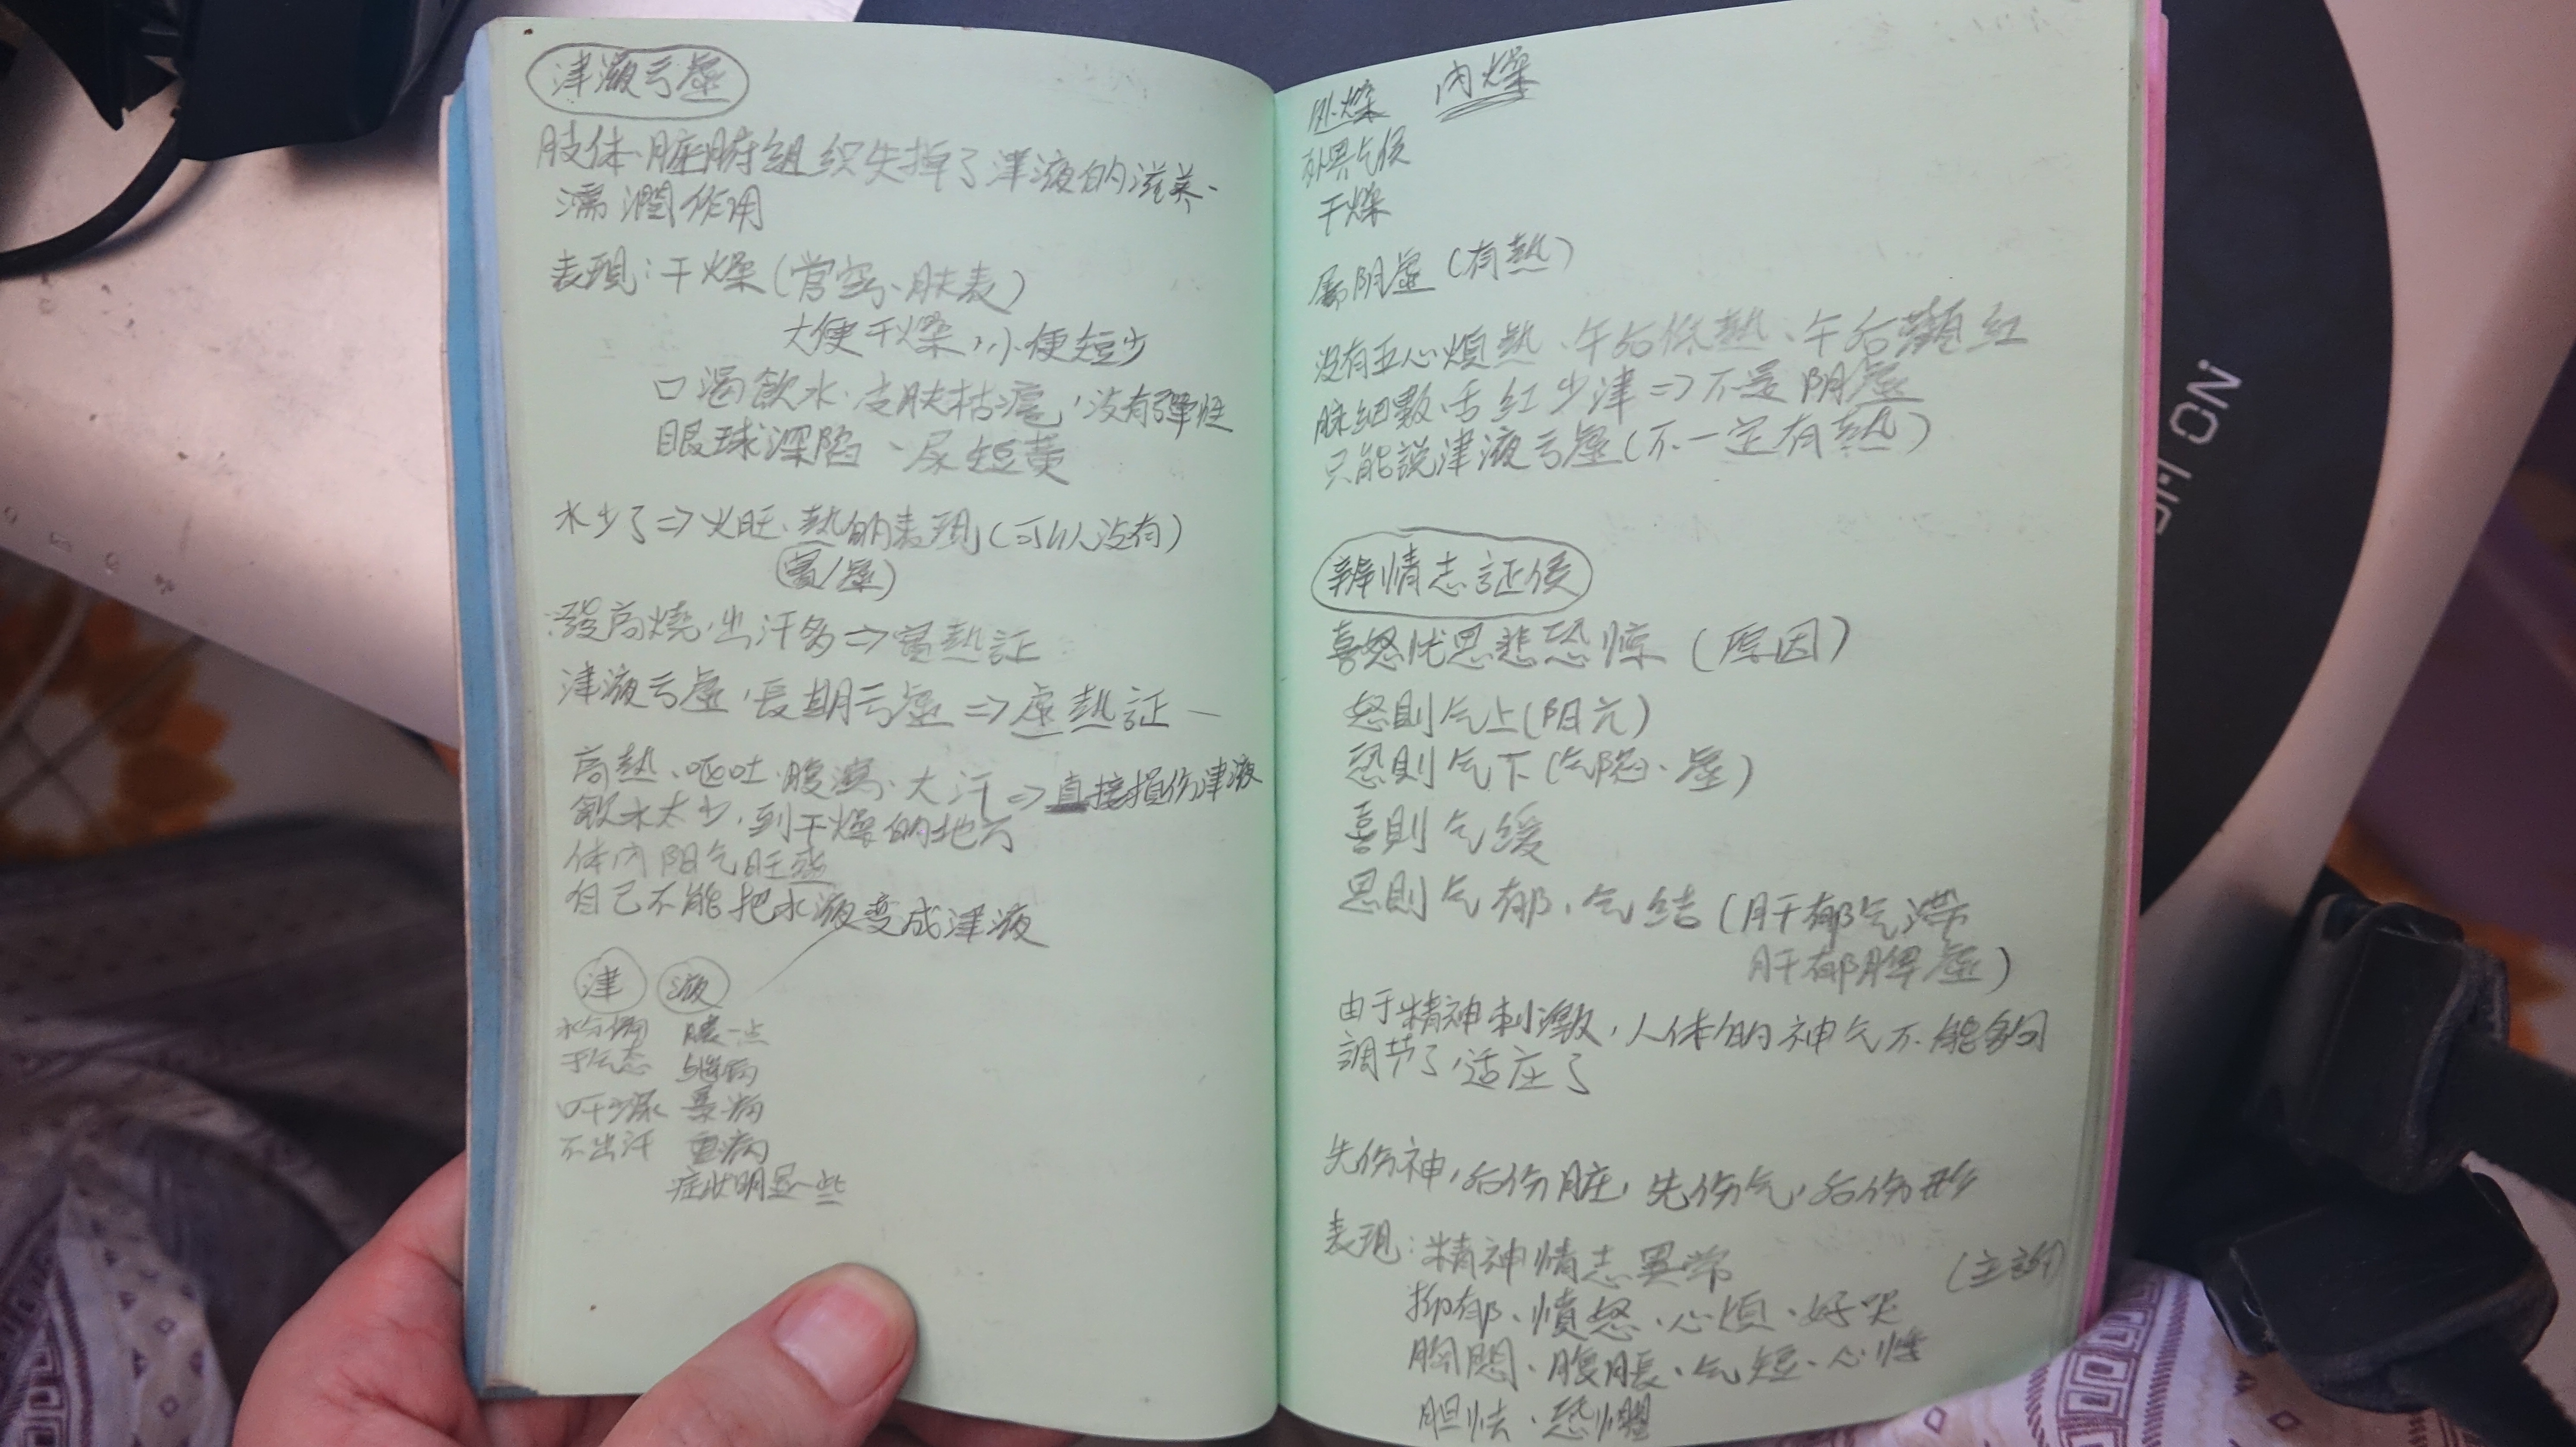 津液亏虛
肢体、脏腑组织失掉了津液的滋养、
濡潤作用
表現：干燥（官窍、肤表）
大便干燥，小便短少
口渴飲水、皮肤枯瘪，没有彈性
眼球深陷、尿短黄
水少了⇒火旺、熱的表現（可以没有）
（實/虛）
發高燒，出汗多⇒實熱証
津液亏虛，長期亏虛⇒虛熱証
高熱、呕吐、腹瀉、大汗⇒直接損伤津液
飲水太少，到干燥的地方
体内阳气旺盛
自己不能把水液变成津液
津 液
水分偏 膿一点
于气态
口干少尿 暴病
不出汗 重病
症狀明显一些
外燥 内燥
外界气候
干燥
屬阴虛（有熱）
没有五心煩熱、午后低熱、午后顴紅
脉細數，舌紅少津⇒不是阴虛
只能説津液亏虛（不一定有熱）
辨情志証候
喜怒忧思悲恐惊（原因）
怒則气上（阳亢）
恐則气下（气陷、虛）
喜則气缓
思則气郁、气结（肝郁气滞
肝郁脾虛）
由于精神刺激，人体的神气不能夠
調节了，适应了
先伤神，后伤脏，先伤气，后伤形
表現：精神情志異常
（主訴）
抑郁、憤怒、心煩、好哭
胸悶、腹脹、气短、心悸
胆怯、恐懼
ON